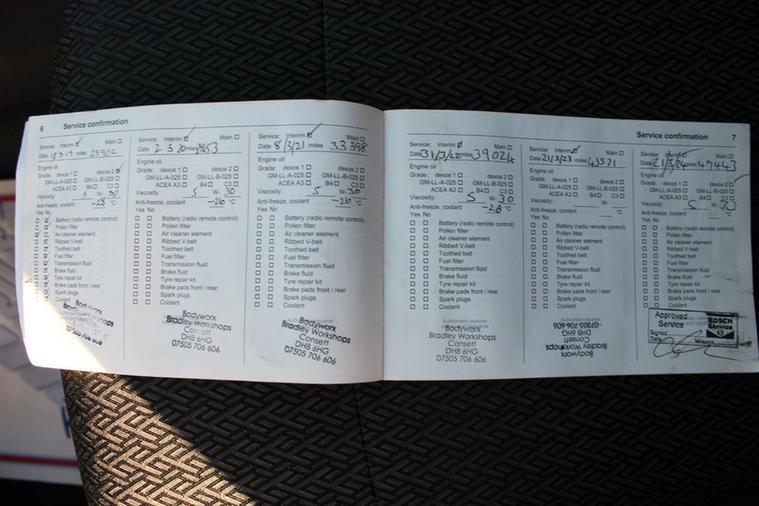 6 Service confirmation
Service: Interim Main
Date miles
Engine oil
Grade: dexos 1 dexos 2
GM-LL-A-025 GM-LL-B-025
ACEA A3 B4 C3
Viscosity: W- 30
Anti-freeze, coolant -28 °C
Yes No
Battery (radio remote control)
Pollen filter
Air cleaner element
Ribbed V-belt
Toothed belt
Fuel filter
Transmission fluid
Brake fluid
Tyre repair kit
Brake pads front / rear
Spark plugs
Coolant
Bodyworx
Bradley Workshops
07505 706 606
Service: Interim Main
Date 2 3 20 miles
Engine oil
Grade: dexos 1 dexos 2
GM-LL-A-025 GM-LL-B-025
ACEA A3 B4 C3
Viscosity: 5 W- 30
Anti-freeze, coolant -26 °C
Yes No
Battery (radio remote control)
Pollen filter
Air cleaner element
Ribbed V-belt
Toothed belt
Fuel filter
Transmission fluid
Brake fluid
Tyre repair kit
Brake pads front / rear
Spark plugs
Coolant
Bodyworx
Bradley Workshops
Consett
DH8 6HG
07505 706 606
Service: Interim Main
Date 8/3/21 miles 33398
Engine oil
Grade: dexos 1 dexos 2
GM-LL-A-025 GM-LL-B-025
ACEA A3 B4 C3
Viscosity: 5 W- 30
Anti-freeze, coolant -26 °C
Yes No
Battery (radio remote control)
Pollen filter
Air cleaner element
Ribbed V-belt
Toothed belt
Fuel filter
Transmission fluid
Brake fluid
Tyre repair kit
Brake pads front / rear
Spark plugs
Coolant
Bodyworx
Bradley Workshops
Consett
DH8 6HG
07505 706 606
Service confirmation 7
Service: Interim Main
Date 31/3/22 miles 39024
Engine oil
Grade: dexos 1 dexos 2
GM-LL-A-025 GM-LL-B-025
ACEA A3 B4 C3
Viscosity: 5 W- 30
Anti-freeze, coolant -28 °C
Yes No
Battery (radio remote control)
Pollen filter
Air cleaner element
Ribbed V-belt
Toothed belt
Fuel filter
Transmission fluid
Brake fluid
Tyre repair kit
Brake pads front / rear
Spark plugs
Coolant
Bodyworx
Bradley Workshops
Consett
DH8 6HG
07505 706 606
Service: Interim Main
Date 21/3/23 miles
Engine oil
Grade: dexos 1 dexos 2
GM-LL-A-025 GM-LL-B-025
ACEA A3 B4 C3
Viscosity: W-
Anti-freeze, coolant °C
Yes No
Battery (radio remote control)
Pollen filter
Air cleaner element
Ribbed V-belt
Toothed belt
Fuel filter
Transmission fluid
Brake fluid
Tyre repair kit
Brake pads front / rear
Spark plugs
Coolant
Bodyworx
Bradley Workshops
Consett
DH8 6HG
07505 706 606
Service: Interim Main
Date 21/3/24 miles 47443
Engine oil
Grade: dexos 1 dexos 2
GM-LL-A-025 GM-LL-B-025
ACEA A3 B4 C3
Viscosity: 5 W- 30
Anti-freeze, coolant °C
Yes No
Battery (radio remote control)
Pollen filter
Air cleaner element
Ribbed V-belt
Toothed belt
Fuel filter
Transmission fluid
Brake fluid
Tyre repair kit
Brake pads front / rear
Spark plugs
Coolant
Approved
Service
BOSCH
Service
Signed
Date Mileage